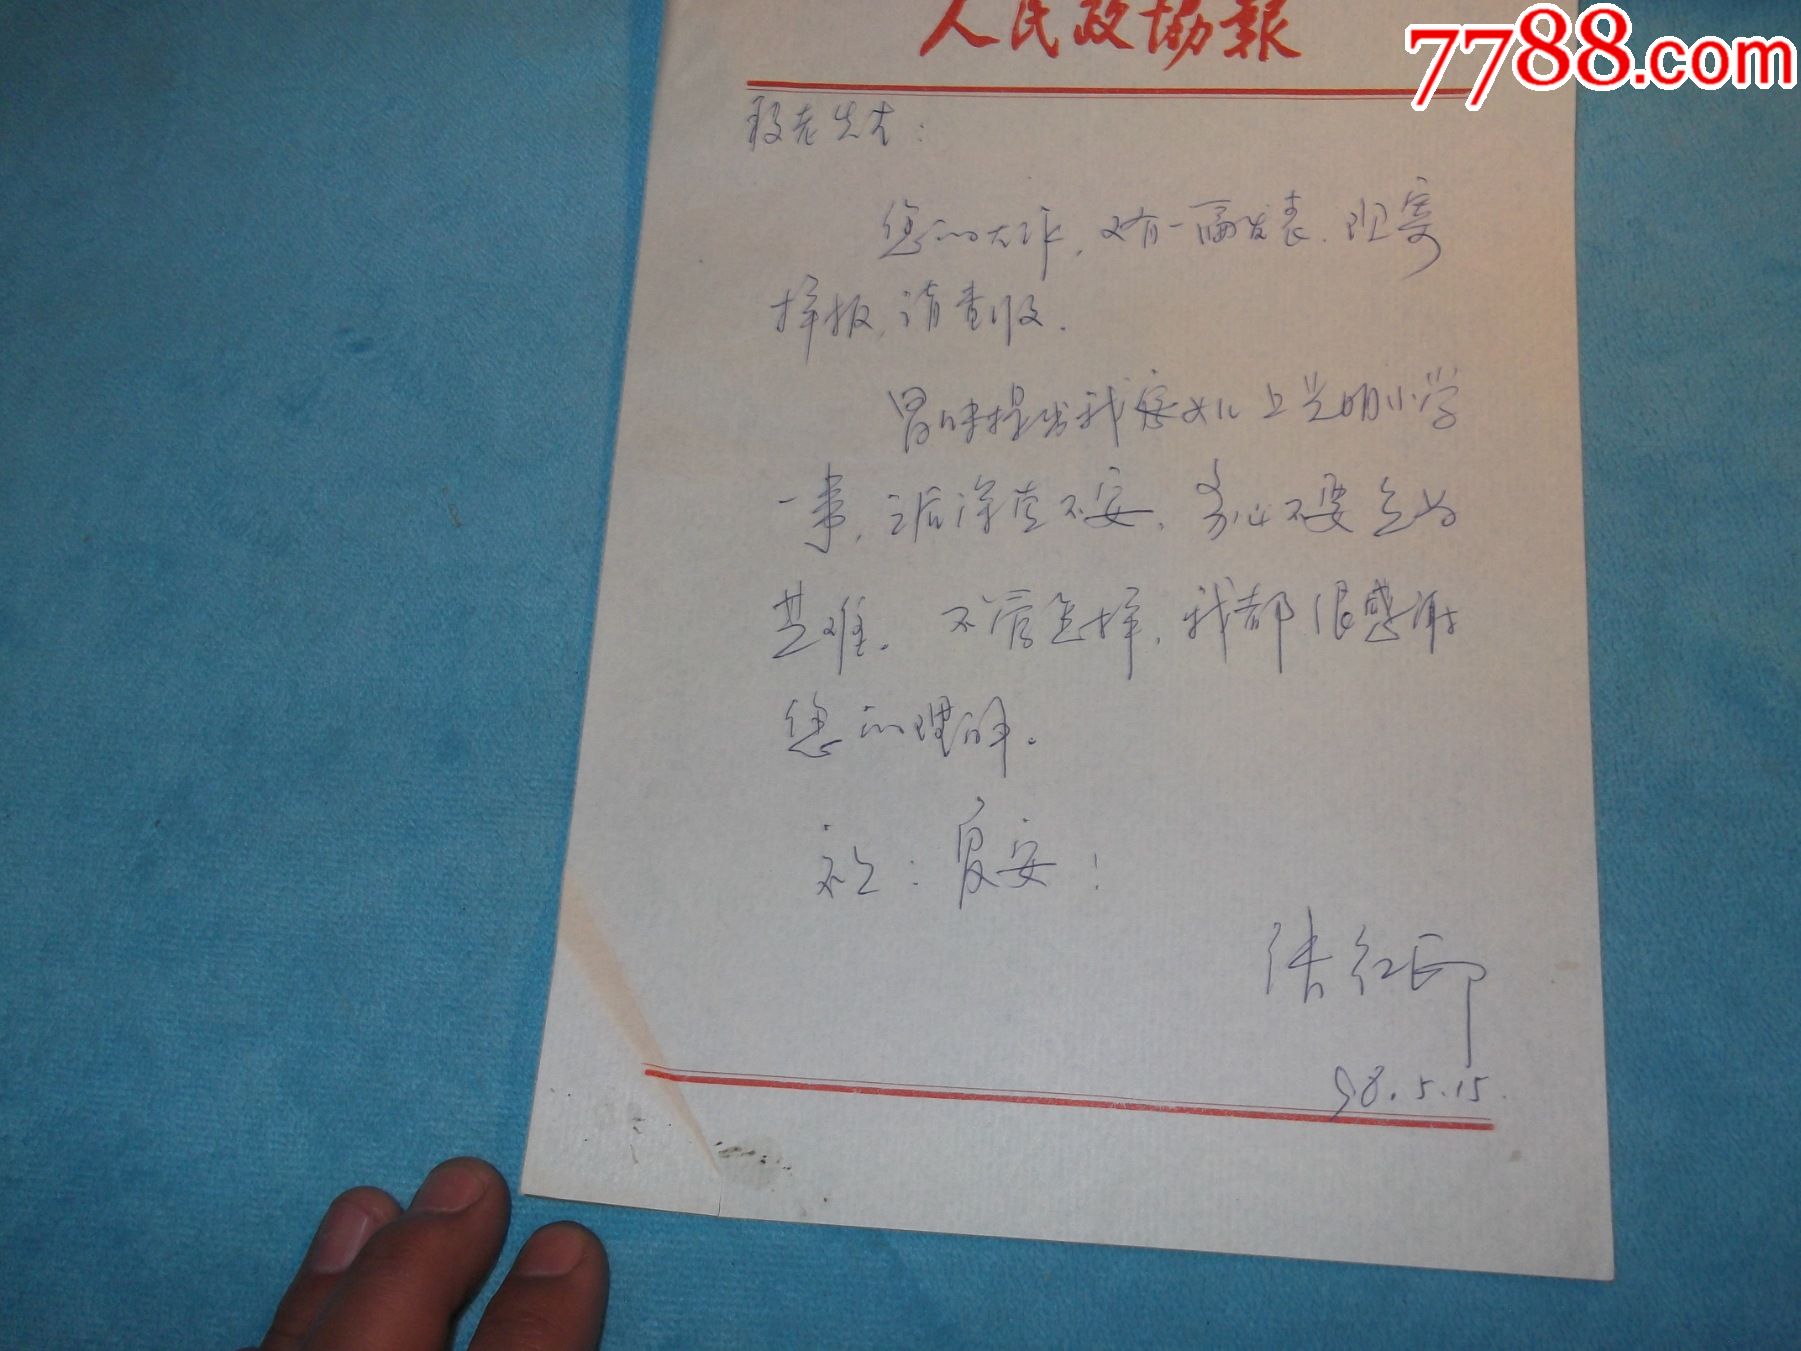 人民政协報
7788.com
段老先生：
您的大作，又有一篇发表，现寄
样报，请查收。
冒昧提出我家女儿上光明小学
一事，之后深感不安，务必不要过为
其难。不管怎样，我都很感谢
您的理解。
祝：夏安！
张红
98.5.15.